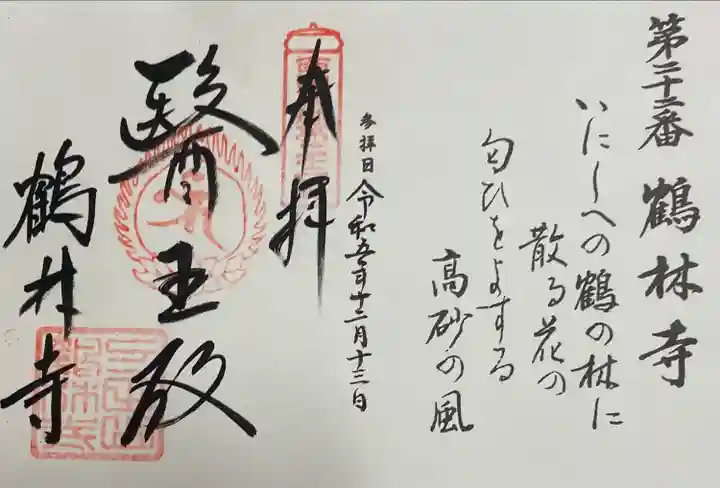 第二十二番 鶴林寺
いにしへの鶴の林に
散る花の
匂ひをよする
高砂の風
参拝日 令和五年十二月十三日
奉拝
醫王殿
鶴林寺